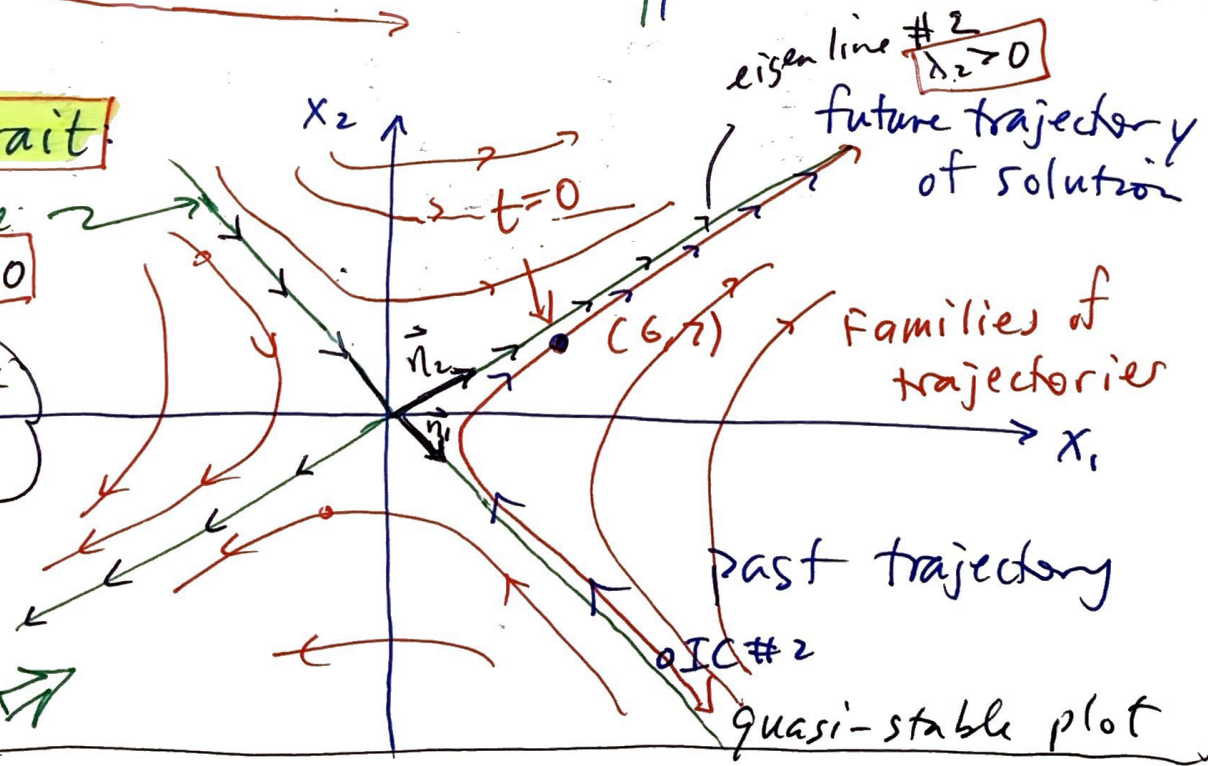 eigen line #2
λ₂>0
future trajectory
of solution
ait:
x₂
t=0
0
η⃗₂
(6,7)
Families of
trajectories
η⃗₁
x₁
past trajectory
IC #2
quasi-stable plot